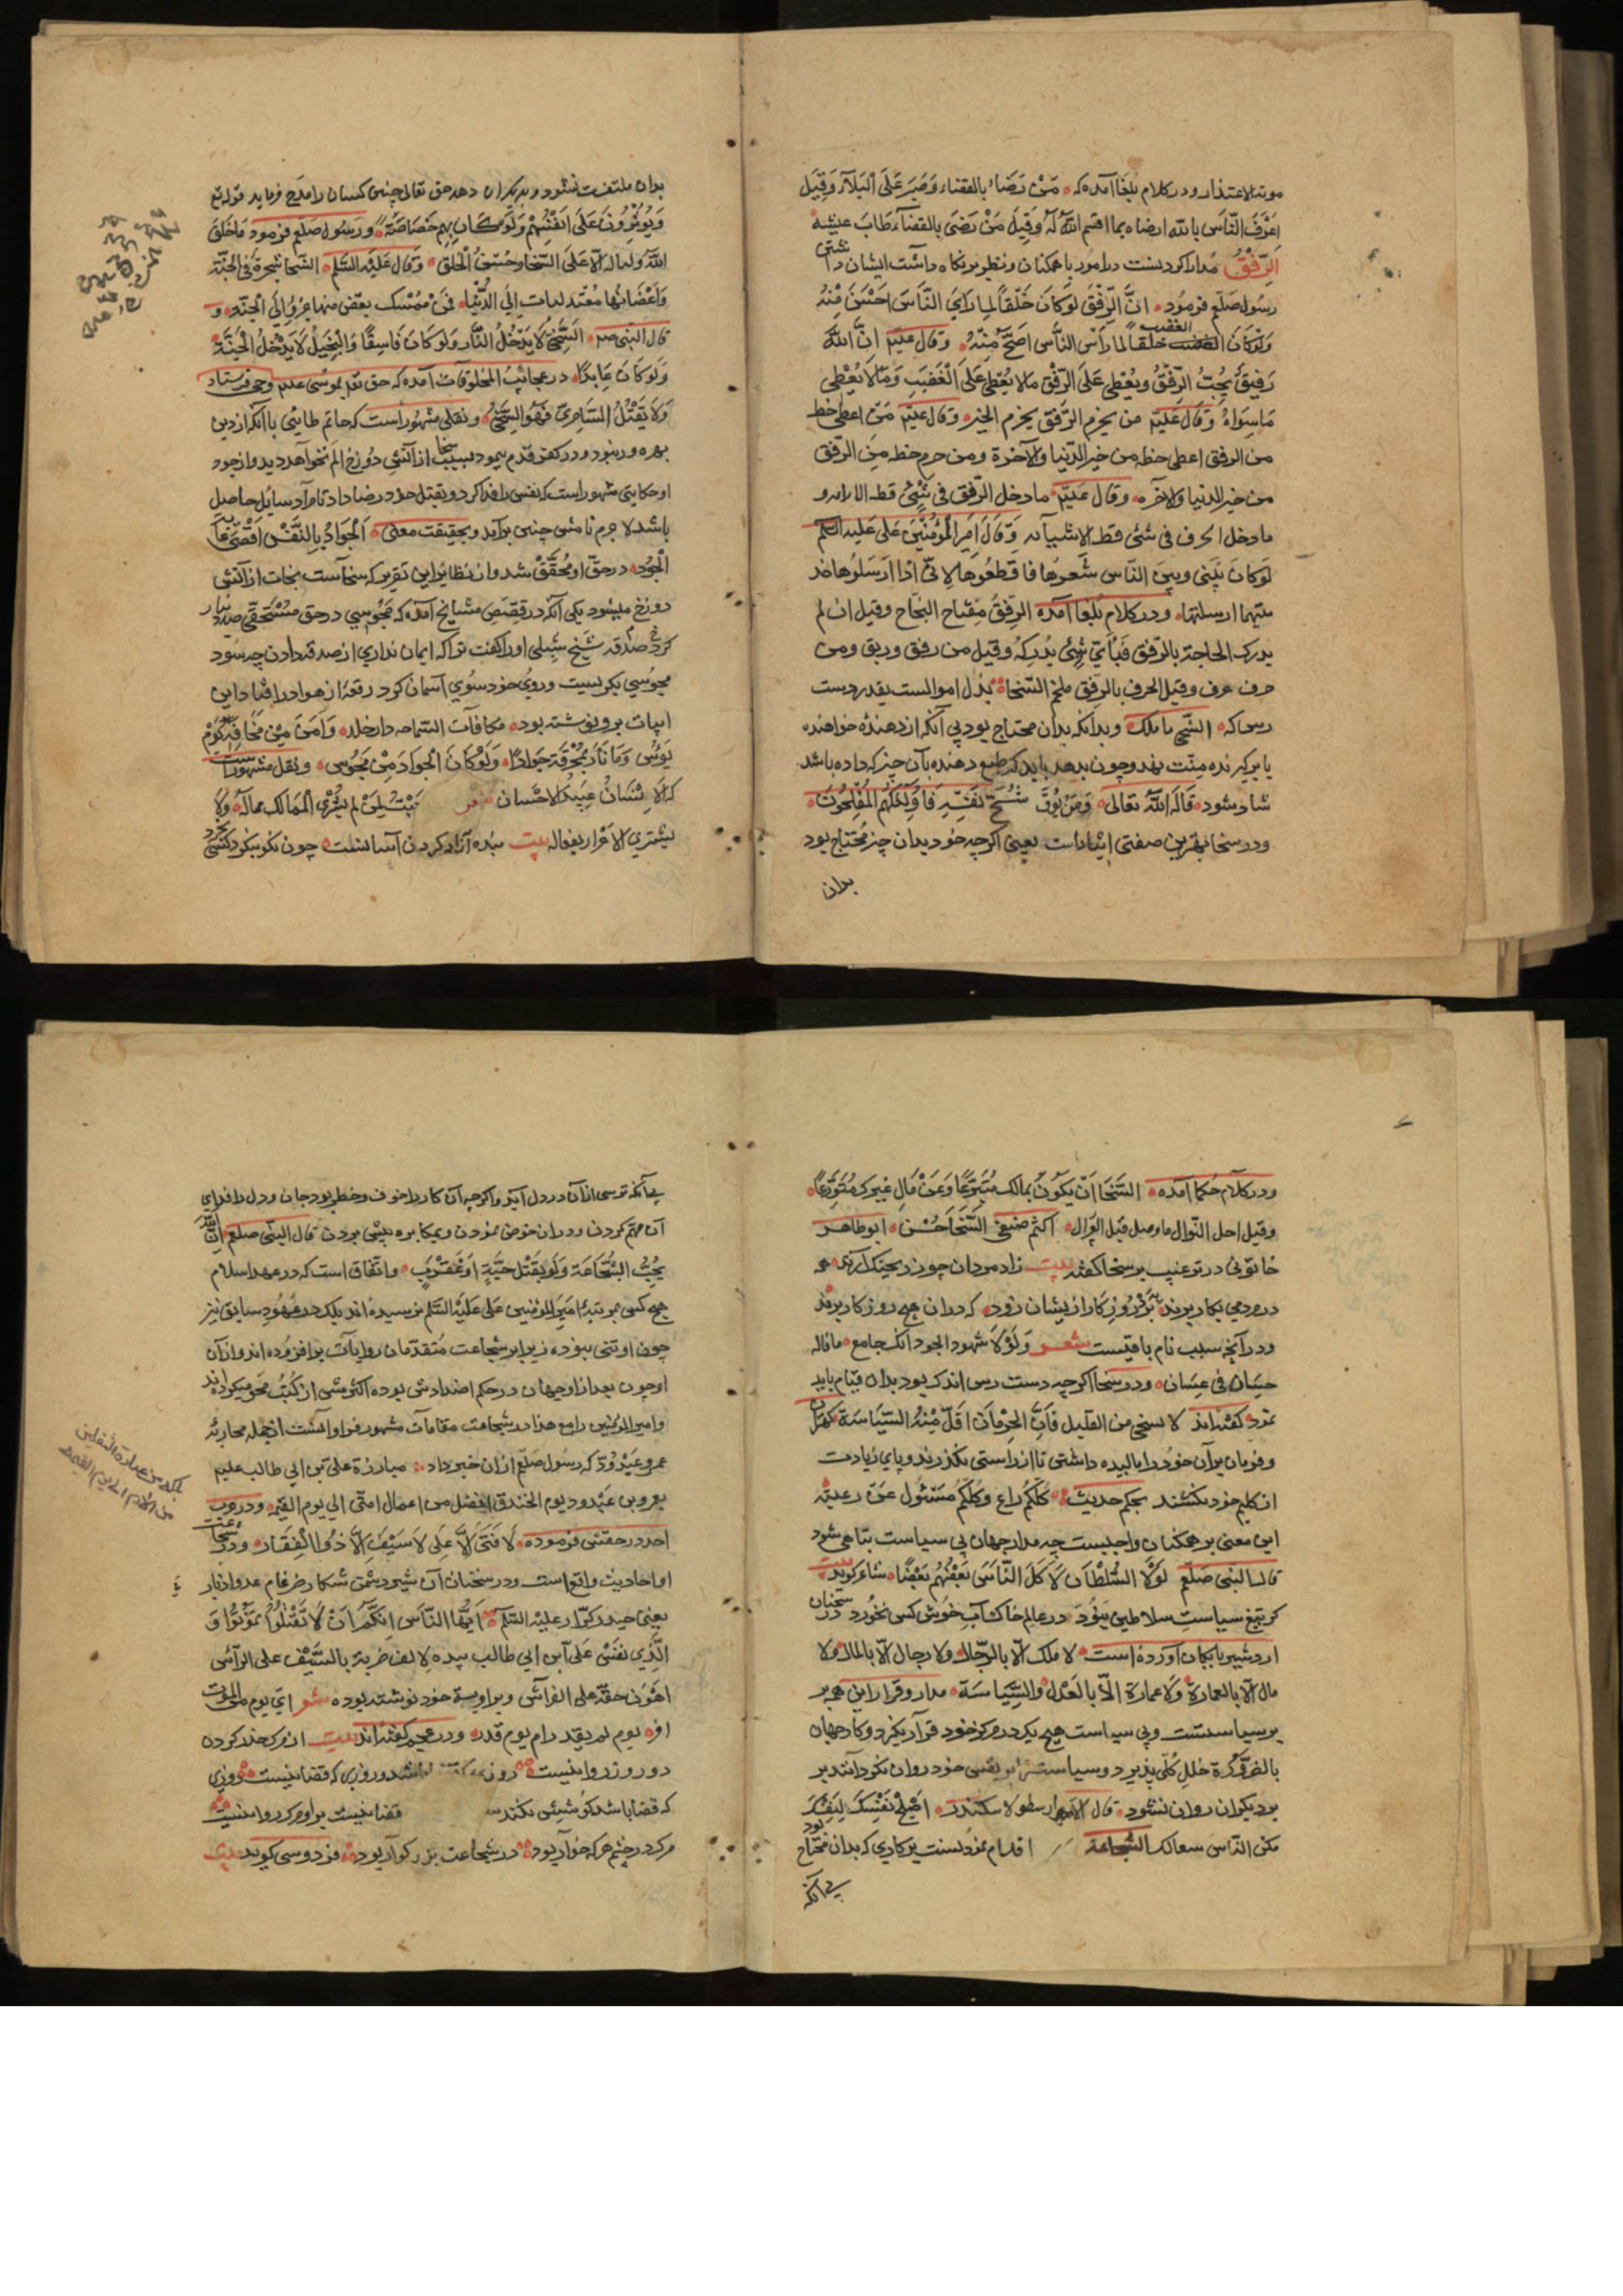 موت الاعتذار ودر کلام بُلَغا آمده که مَنْ رَضَاء بالقضاء وَصَبَرَ عَلَی الْبَلَآءِ وَقِیلَ
اَعْرَفَ النَّاسِ بالله ارضاه بما اقسم اللهُ لَهُ وَقِیلَ مَنْ رَضَیَ بالقضآءِ طَابَ عیشه
الرِّفْقُ مُدارا کردنست در امور با همکنان ونظر بر نکاه داشت ایشان داشتن
رسُول صلّع فرمُود اِنَّ الرِّفْقَ لوکَانَ خَلْقاً لما رَاَیَ النَّاسَ اَحْسَنَ مِنْهُ
وَلَوْکَانَ الغضب خلقاً لما رَاَیَ النَّاس اَصَحَّ مِنْهُ وَقَالَ علیّم اِنَّ اللهَ
رَفیقٌ یُحِبُّ الرِّفْقُ ویُعْطِی عَلَی الرِّفْق مالا یُعْطِی عَلَی الْغَضَبِ وَمَالَا یُعْطِی
مَاسِوَاهُ وَقَالَ عَلیّم من یحرم الرّفق یحرم الخیر وَقَالَ علیّم مَنْ اعطی خط
من الرفق اعطی حظه من خیر الدّنیا والآخرة ومن حرم حظه مِنَ الرّفق
من خیر الدنیا والآخره وَقَالَ علیّم ما دخل الرّفق فی شَیْئٍ قط الا زانه و
مادخل الحرف فی شئ قط الا شانه وَقَالَ اَمِیرُ الْمُؤْمِنِینَ عَلی عَلیه السلم
لوکان بَیْنی وبینَ النّاس شَعَرُها فا قطعُوها لاِنّی اذا اَرْسَلُوها مد
متیهما ارسلتها ودر کلام بُلَغا آمده الرِّفْقُ مِفْتاح النَّجَاح وقیل ان لم
یدرک الحاجة بالرّفق فَبِاَیِّ شَیْئٍ یُدْرِکهُ وقیل من رفق وریق ومن
حرف عرف وقیل الحرف بالرّفق ملخم السَّخَاءُ بَذْل اموالست بقدر دست
رس که السَّخِی ما ملک وبدانکه بدان محتاج بود بی آنکه از دهنده خواهنده
یا برکیرنده مِنّت نهد وچون بدهد باید که طبع دهنده بآن چیز که داده باشد
شاد شود قَالَه اللهُ تعَالی وَمَنْ یُوقَ شُحَّ نَفْسِهِ فَاُولٰئِکَ هُمُ الْمُفْلِحُونَ
ودر سخا بهترین صفتی ایثار است یعنی اکرچه خود بدان چیز محتاج بود
بدان
بدان ملتفت نشود وبدیکران دهد حق تعالی چنین کسان را مدح فرماید قوله تع
وَیُؤْثِرُونَ عَلَی اَنْفُسِهِمْ وَلَوْ کَانَ بِهِمْ خَصَاصَةٌ ورَسُول صلّم فرمود مَا خَلَقَ
اللهُ ولیا له الّا عَلَی السَّخا وحُسْنُ الْخُلْقِ وَقَالَ عَلَیْهِ السَّلَم السَّخا شَجَرَةٌ فی الجَنَّة
وَاَغْضَانُها مُتَدلیات اِلَی الدُّنْیا فَمَنْ مُمْسِک بغُصْن منها جَرُّوا اِلَی الْجَنَّة و
قال النبی صلم السَّخِیُ لَا یَدْخُلُ النَّار وَلَوکَانَ فَاسِقًا وَالْبَخِیلُ لَا یَدْخُلُ الْجَنَّةَ
وَلَوکَانَ عَابِدًا در عجائبُ المخلوقات آمده که حق تع بموسی علیم وحی فرستاد
وَلَا یَقْتُلُ السَّامِرِیَّ فَهُوَ السَّخِیُ ونقلی مشهُور است که حاتم طایئ با آنکه از دین
بهره ور نبود ودر کفر قدم پیمود بسبب سخا از آتش دوزخ الم نخواهد دید واز جود
او حکایتی مشهُور است که نفس را فدا کرد وبقتل خود رضا داد تا مرآد سایُل حاصل
باشد لا جرم نامش چنین برآمد وبحقیقت معنی اَلْجَوَادُ بِالنَّفْسِ اَقْصَی غَایَة
الْجُود در حقّ او مُحَقَّقْ شد واز نظایر این تقریر که سخاست نجات از آتش
دوزخ میشود یکی آنکه در قِصَصِ مشایخ آمده که مَجُوسِیی در حقّ مُسْتَحِقّی صد دینار
کرد صَدقه شیخ شبلی اورا کفت ترا که ایمان نداری از صدقه دادن چه سود
مجُوسی بکریست وروی خود سُوی آسمان کرد رقعهٔ از هوا درافتاد این
ابیات برو نوشته بود مکافاَت السَّماحه دار خلد وَاَمَنَ مِنْ مَخَافَةِ یَوْم
بُوْسی وَمَا نَار بمُحْرِقَةٍ جَوَادًا وَلَوْکَانَ الْجوادَ مِنْ مَجُوسِ ونقل مشهُور است
که اَلاِنْسَانُ عَبِیدُ الاِحْسَانِ شعر عَجِبْتُ لِمَنْ یَشْتَرِی الممَالِک بِمَالِهِ وَلَا
یشتری الاَحْرَار بفعاله بیت بنده آزاد کردن آسانست چون نکو بنکرد کسی
ودر کلام حُکما آمده السَّخَا اَنْ یکونَ بمالک مُتَبَرِّعاً وَعَنْ مَالِ غیرک مُتَوَرِّعاً
وقیل احل النّوال ما وصل قبل السُّوال اکثم صیفی السَّخَا حُسْن ابو طاهر
خاتونی در ترغیب بر سخا کفته بیت زاد مردان چو زر بچنک آرند همه
در مردمی بکار برند بَتَر روزکار از ایشان زود که دران هیچ روزکار برند
ودر آنچه سبب نام باقیست شعر وَلَوْلَا شهود الجود انک جامع ما قاله
حسّان فی غسّان ودر سخا اکرچه دست رس اندک بود بدان قیام باید
نمود کفته اند لا تستحی من القلیل فاِنَّ الحِرْمَانَ اَقَلّ مِنْهُ السِّیَاسَة کهتران
وفرمان بران خود را مالیده داشتی تا از راستی نکذرند وپای زیادت
از کلیم خود نکشند بحکم حدیث کُلُّکُم راعٍ وَکُلُّکُم مَسْئُول عَنْ رعیّته
این معنی بر همکنان واجبست چه مدار جهان بی سیاست تباهی شود
قال النبی صلّع لَوْلَا السُّلْطَانُ لَاَکَلَ النَّاسَ بَعْضُهُمْ بَعْضًا شاعر کوید بیت
کر تیغ سیاستِ سلاطین نبُوَد در عالم خاک آب خُوش کس نخُورد در سخنان
اردشیر بابکان آورده است لا ملک الّا بالرّجال ولا رجال الّا بالمال ولا
مال الّا بالعمارة وَلَا عمارة اِلَّا بالْعَدْل والسِّیَاسَة مدار وقرار این همه بر
بر سیاستست وبی سیاست هیچ یک در مرکز خود قرآر نکیرد وکار جهان
بالضّرُورَة خللِ کُلّی پذیرد وسیاست تا بر نفس خود روان نکردانند بر
بر دیکران روان نشود قال ارسطو لاسکندر اَصْلِحْ نَفْسَکَ لِنَفْسِکَ
مکن النّاس سعالک الشَّجاعة اقدام نمودنست بر کاری که بدان محتاج بود
بی آنکه
بی آنکه ترسی ازان در دل آید واکرچه آن کار را خوف وخطر بود جان ودل را فدای
آن مهم کردن ودران خوض نمودن وبمکابره پیش بردن قال النبی صلّعم اِنَّ اللهَ
یُحِبُّ الشُّجَاعَة وَلَو بقَتْلِ حَیَّةٍ اَوْ عَقْرَبٍ واتفاق است که در عهد اسلام
هیچ کس بمرتبهٔ امیرالمؤمنین عَلی عَلَیْهِ السَّلَم نرسیده اند بلک در عُهُودِ سابق نیز
چون او تنی نبوده زیرا بر شجاعت مُتقدّمان روایات برافزوده اند وازان
او چون بعد از او جهان در حکم اضدادش بوده اکثرش از کُتُب مَحو میکرده اند
وامیرالمؤمنین را مع هذا در شجاعت مقامات مشهُور فراوانست از جمله محاربهٔ
عمرو عَبْدِودّ که رسُول صلّع ازان خبر داد مبارزة علی بن ابی طالب علیم
بعمرو بن عَبْدود یوم الخندق افضل من اعمال امتی الی یوم القیمه ودر حرب
احد در حقش فرموده لَا فَتَیَ اِلَّا عَلِی لَا سَیْفَ اِلَّا ذُوا الْفِقَار ودر شجاعت
او احادیث واقع است ودر سخنان آن شیر دشمن شکار ضرغام عدو ادبار
یعنی حیدر کرّار علیه السّلم اَیُّهَا النَّاسَ اِنَّکُم اِنْ لَا تُقْتَلُوا تَمُوتُوا وَ
الَّذِی نَفْسُ عَلَی ابن ابی طالب بیده لِالف ضربة بالسَّیْف علی الرّأس
اهْوَن مِن حتفٍ علی الفراش وبر او پرهٔ خود نوشته بوده شعر ایّ یوم من الموت
افر یوم لم یقدر ام یوم قدر ودر عجم کفته اند بیت از مرک حذر کردن
دو روز روا نیست روزی که قضا باشد وروزی که قضا نیست روزی
که قضا باشد کوشش نکند سود روزی که قضا نیست برو مرک روا نیست
مرک در چشم هرکه خوآر بود در شجاعت بزرکوآر بود فردوسی کوید بیت
بلکه من عبادة الثقلین